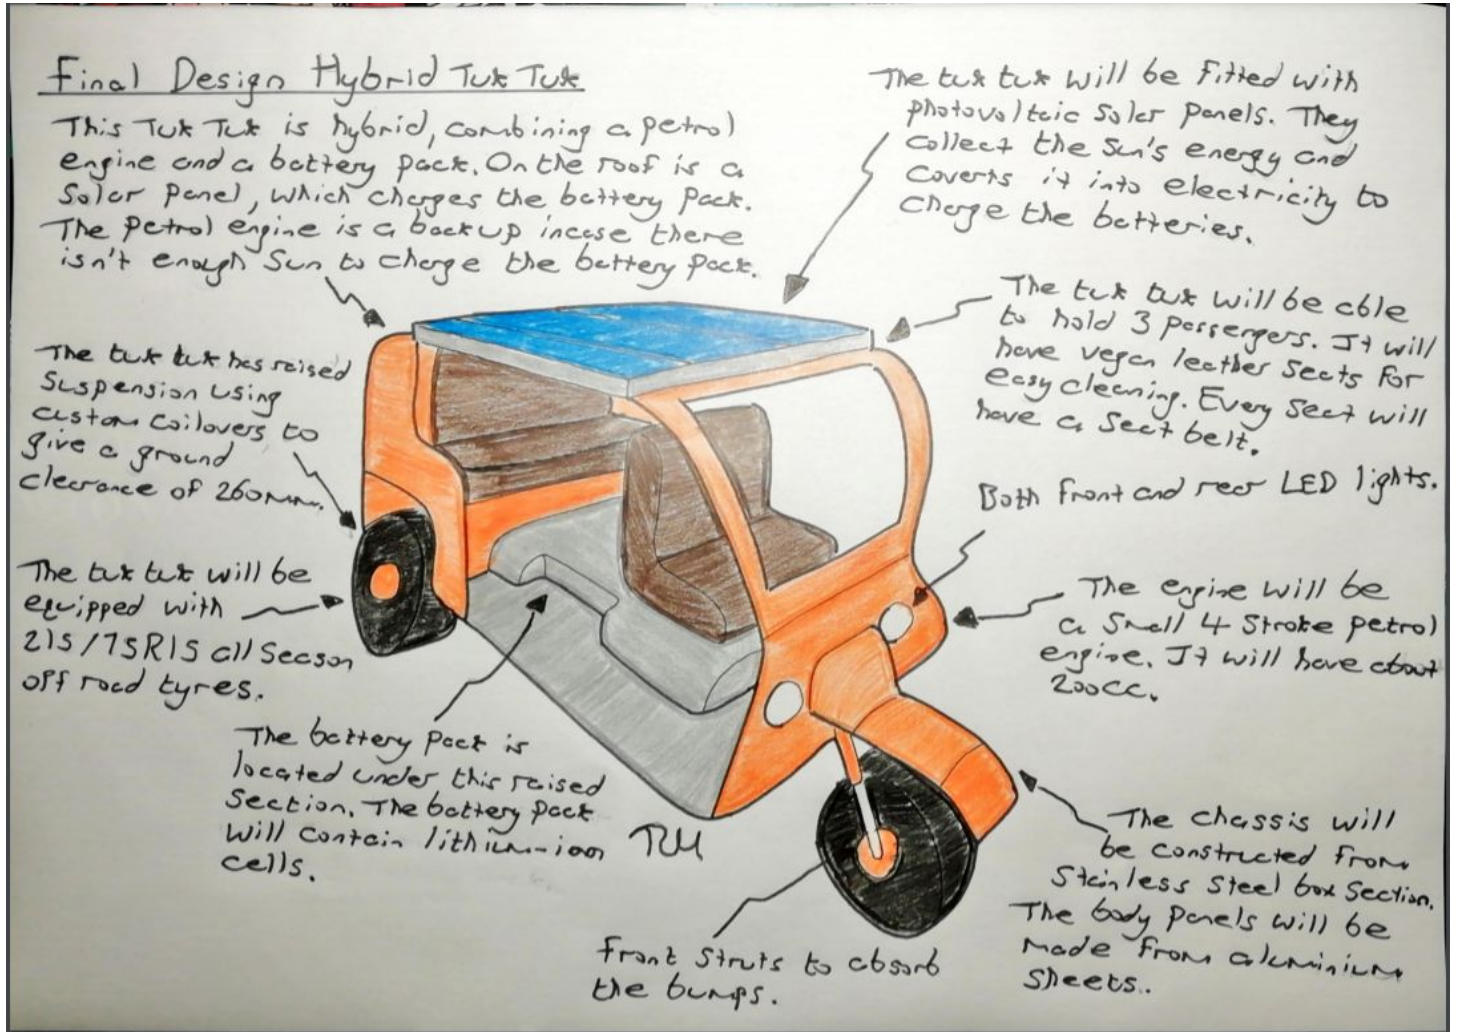 Final Design Hybrid Tuk Tuk
This Tuk Tuk is hybrid, combining a petrol
engine and a battery pack. On the roof is a
Solar Panel, which charges the battery pack.
The petrol engine is a backup incase there
isn't enough Sun to charge the battery pack.
The tuk tuk will be fitted with
photovoltaic Solar panels. They
collect the Sun's energy and
coverts it into electricity to
charge the batteries.
The tuk tuk will be able
to hold 3 passengers. It will
have vegan leather seats for
easy cleaning. Every Seat will
have a Seat belt.
The tuk tuk has raised
Suspension using
custom coilovers to
give a ground
clearance of 260mm.
Both front and rear LED lights.
The tuk tuk will be
equipped with
215/75R15 all Season
off road tyres.
The engine will be
a Small 4 Stroke petrol
engine. It will have about
200cc.
The battery pack is
located under this raised
Section. The battery pack
will contain lithium-ion
cells.
The chassis will
be constructed from
Stainless Steel box Section.
The body panels will be
made from aluminium
Sheets..
front Struts to absorb
the bumps.